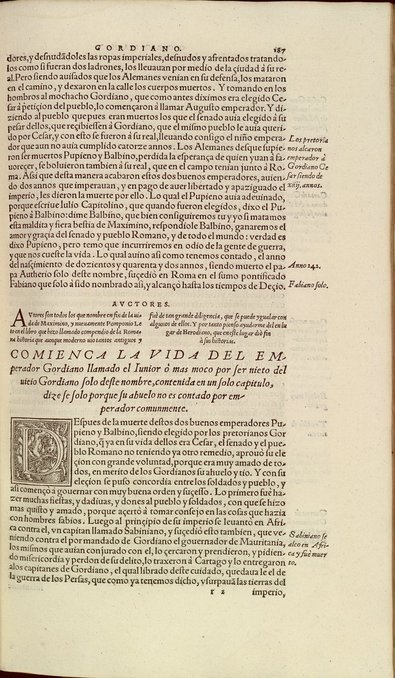 GORDIANO. 187
dores, y desnudãdoles las ropas imperiales, desnudos y afrentados tratando-
los como si fueran dos ladrones, los lleuauan por medio de la çiudad à su re
al. Pero siendo auisados que los Alemanes venian en su defensa, los mataron
en el camino, y dexaron en la calle los cuerpos muertos. Y tomando en los
hombros al mochacho Gordiano, que como antes diximos era elegido Ce-
sar à petiçion del pueblo, lo començaron à llamar Augusto emperador. Y di-
ziendo al pueblo que pues eran muertos los que el senado auia elegido à su
pesar dellos, que reçibiessen à Gordiano, que el mismo pueblo le auia queri-
do por Cesar, y con esto se fueron à su real, lleuando consigo el niño empera-
dor que aun no auia cumplido catorze annos. Los Alemanes desque supie-
ron ser muertos Pupieno y Balbino, perdida la esperança de quien yuan à fa-
uorçer, se boluieron tambien à su real, que en el campo tenian junto à Ro-
ma. Assi que desta manera acabaron estos dos buenos emperadores, auien-
do dos annos que imperauan, y en pago de auer libertado y apaziguado el
imperio, les dieron la muerte por ello. Lo qual el Pupieno auia adeuinado,
porque escriue Iulio Capitolino, que quando fueron elegidos, dixo el Pu-
pieno à Balbino: dime Balbino, que bien conseguiremos tu y yo si matamos
esta maldita y fiera bestia de Maximino, respondiole Balbino, ganaremos el
amor y graçia del senado y pueblo Romano, y de todo el mundo: verdad es
dixo Pupieno, pero temo que incurriremos en odio de la gente de guerra,
y que nos cueste la vida. Lo qual auino assi como tenemos contado, el anno
del nasçimiento de dozientos y quarenta y dos annos, siendo muerto el pa-
pa Autherio solo deste nombre, sucedió en Roma en el sumo pontificado
Fabiano que solo à sido nombrado assi, y alcançó hasta los tiempos de Deçio.
Los pretoria
nos alcaron
emperador à
Gordiano Ce
sar siendo de
xiij, annos.
Anno 242.
Fabiano solo.
AVCTORES.
AVctores son todos los que nombre en fin de la vi
da de Maximino, y nueuamente Pomponio Le
to en el libro que hizo llamado compendio de la Roma
na historia que aunque moderno uio tantos antiguos y
fue de tan grande diligencia, que se puede ygualar con
algunos de ellos. Y por tanto pienso ayudarme del en lu
gar de Herodiano, que en este lugar dió fin
à sus historias.
COMIENCA LA VIDA DEL EM-
perador Gordiano llamado el Iunior ò mas moco por ser nieto del
uieio Gordiano solo deste nombre, contenida en un solo capitulo,
dize se solo porque su abuelo no es contado por em-
perador comunmente.
DEspues de la muerte destos dos buenos emperadores Pu-
pieno y Balbino, siendo elegido por los pretorianos Gor
diano, q̃ ya en su vida dellos era Cesar, el senado y el pue-
blo Romano no teniendo ya otro remedio, aprouó su ele
çion con grande voluntad, porque era muy amado de to-
dos, en merito de los Gordianos su abuelo y tio. Y con su
eleçion se puso concordia entre los soldados y pueblo, y
assi começó à gouernar con muy buena orden y sucesso. Lo primero fue ha-
zer muchas fiestas, y dadiuas, y dones al pueblo y soldados, con que se hizo
mas quisto y amado, porque açertó à tomar consejo en las cosas que hazia
con hombres sabios. Luego al prinçipio de su imperio se leuantó en Afri-
ca contra el, vn capitan llamado Sabiniano, y suçedió esto tambien, que ve-
niendo contra el por mandado de Gordiano el gouernador de Mauritania,
los mismos que auian conjurado con el, lo çercaron y prendieron, y pidien-
do misericordia y perdon de su delito, lo traxeron à Cartago y lo entregaron
alos capitanes de Gordiano, el qual librado deste cuidado, quedaua le el de
la guerra de los Persas, que como ya tenemos dicho, vsurpauã las tierras del
Sabiniano se
alço en Afri-
ca y fue muer
to.
r 2 imperio,